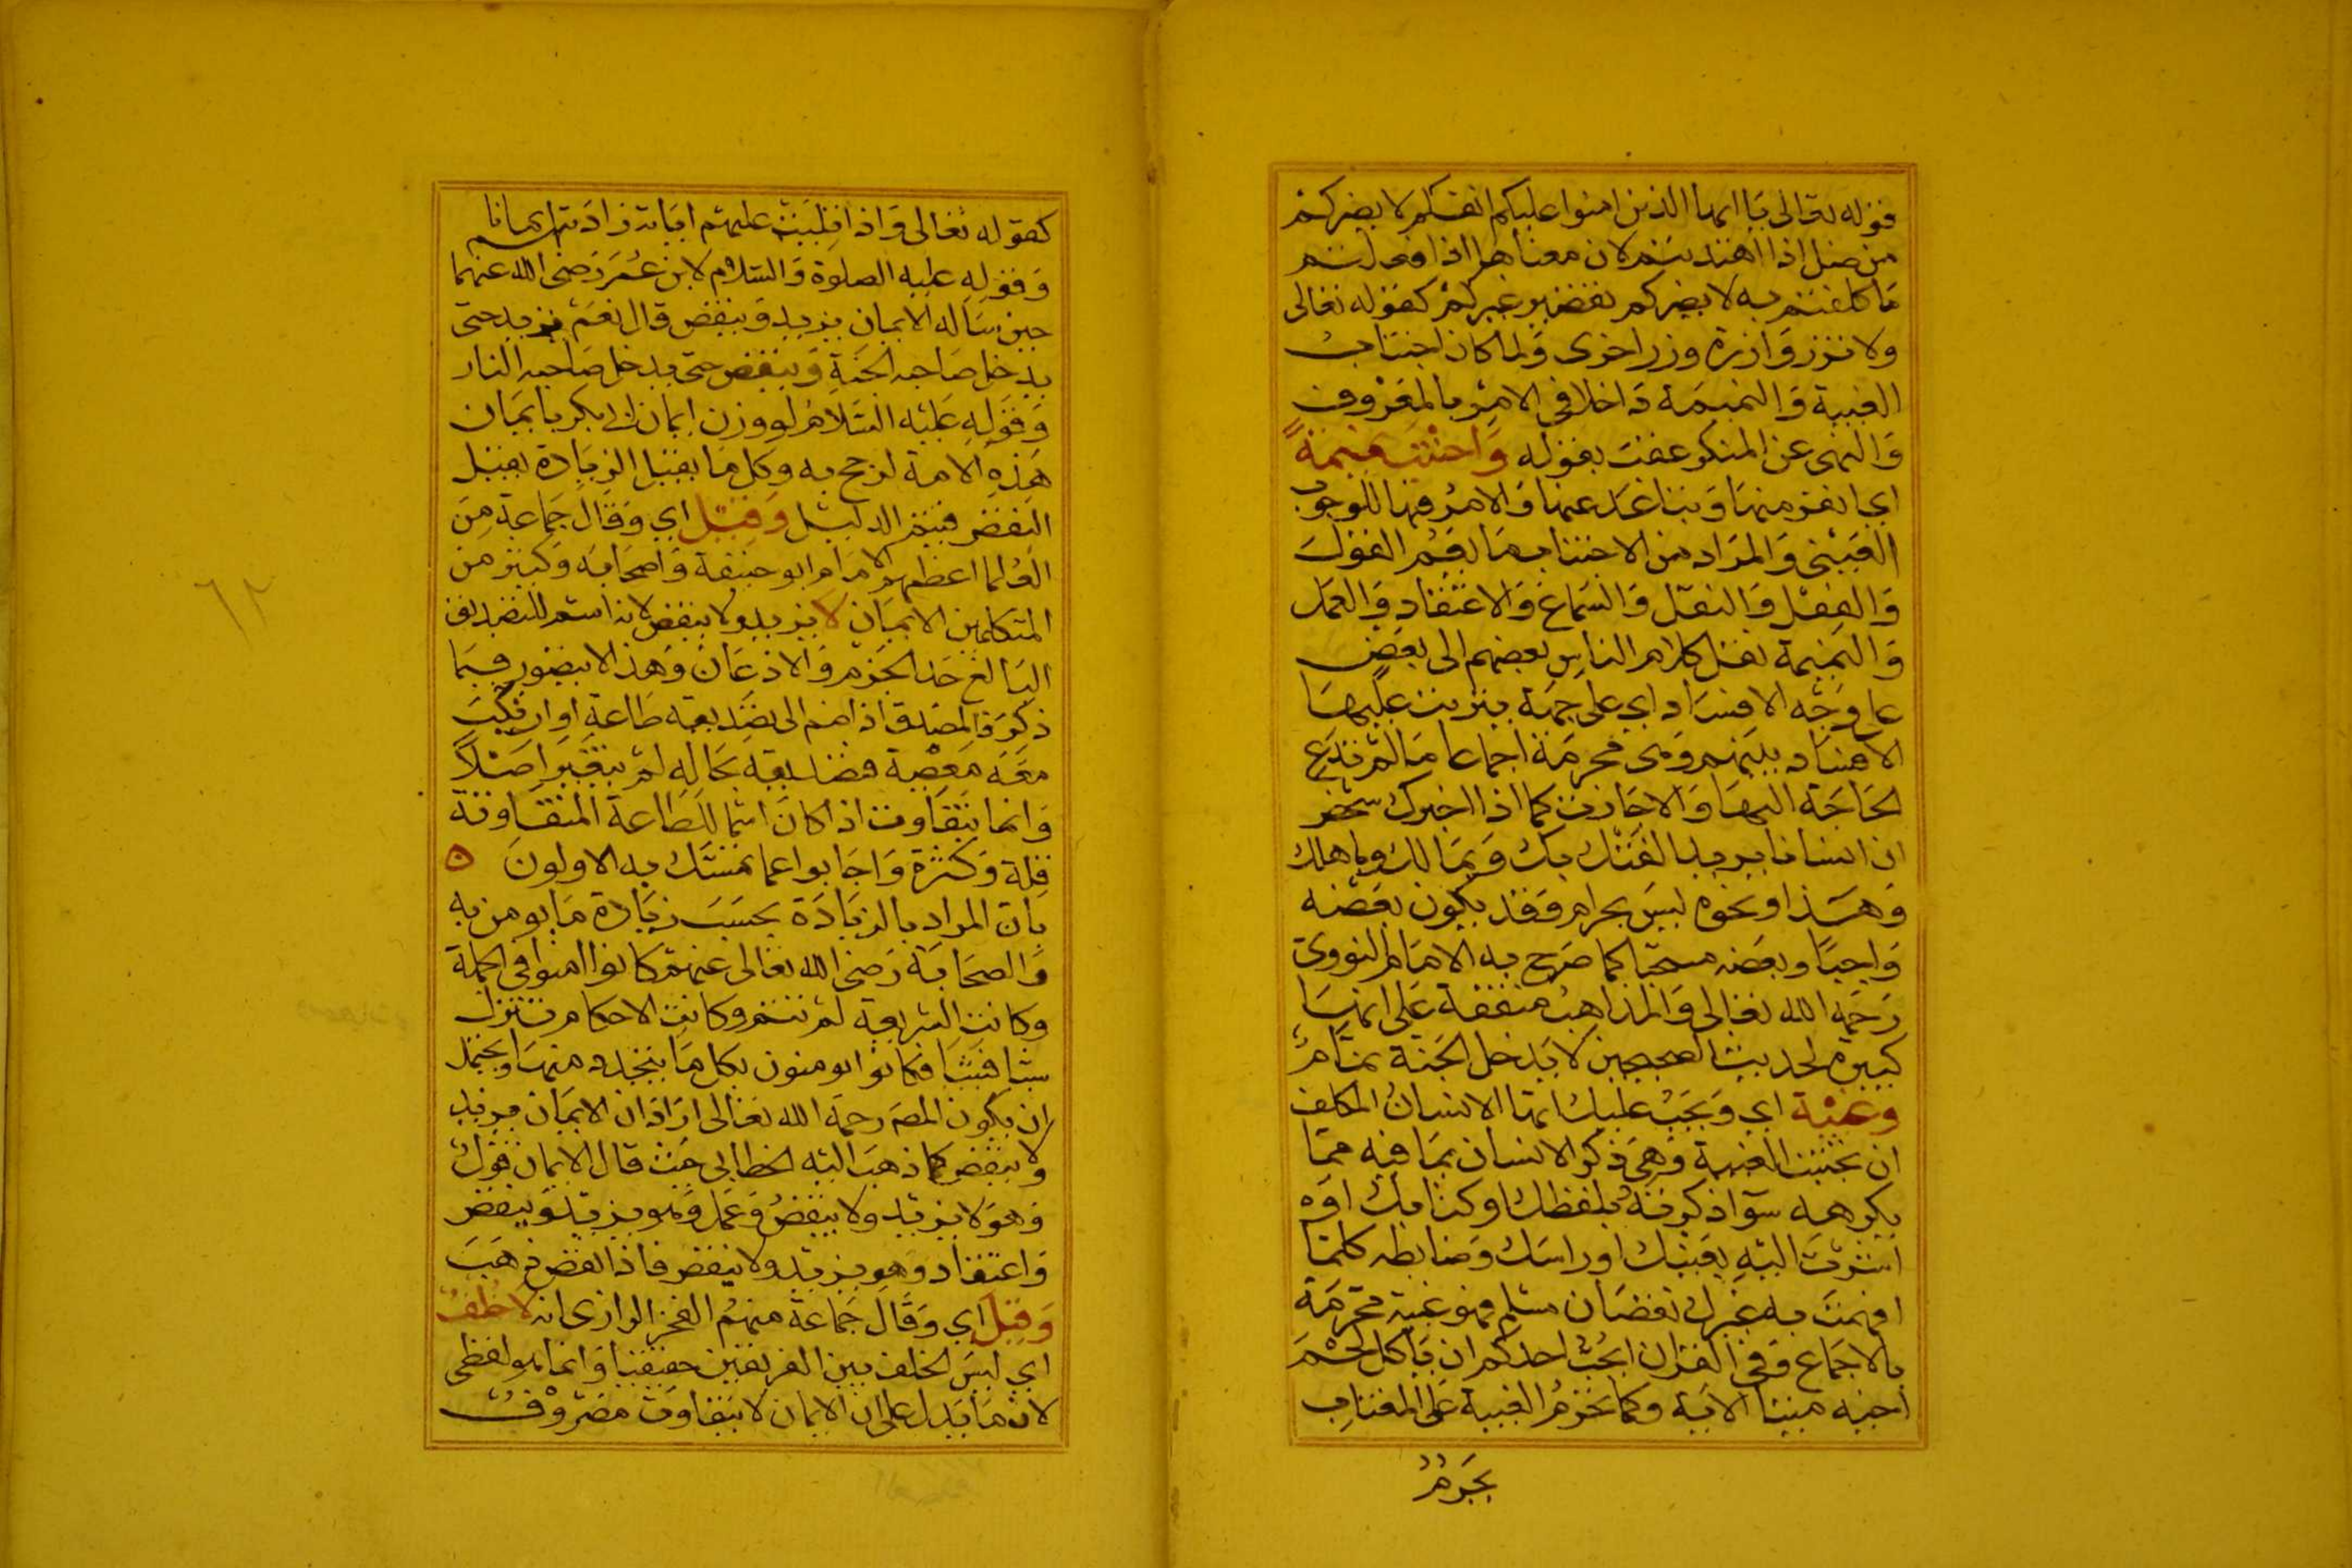 قوله تعالى يا ايها الذين امنوا عليكم انفسكم لا يضركم
من ضل اذا اهتديتم لان معناها اذا فعلتم
ما كلفتم به لا يضركم تقصير غيركم كقوله تعالى
ولا تزر وازرة وزر اخرى ولما كان اجتناب
الغيبة والنميمة داخلا في الامر بالمعروف
والنهى عن المنكر عقب بقوله واجتنب نميمة
اي انفر منها وتباعد عنها والامر فيها للوجوب
العينى والمراد من الاجتناب ما يعم القول
والفعل والنقل والسماع والاعتقاد والعمل
والنميمة نقل كلام الناس بعضهم الى بعض
على وجه الافساد اي على جهة يترتب عليها
الافساد بينهم وهى محرمة اجماعا ما لم تدع
الحاجة اليها والا جازت كما اذا اخبرك شخص
ان انسانا يريد الفتك بك وبمالك وباهلك
وهذا ونحوه ليس بحرام وقد يكون بعضه
واجبا وبعضه مستحبا كما صرح به الامام النووى
رحمه الله تعالى والمذاهب متفقة على انها
كبيرة لحديث الصحيحين لا يدخل الجنة نمام
وغيبة اي ويجب عليك ايها الانسان المكلف
ان تجتنب الغيبة وهى ذكر الانسان بما فيه مما
يكرهه سوآ ذكرته بلفظك او كتابك او
اشرت اليه بعينك او راسك وضابطه كلما
افهمت به غيرك نقصان مسلم فهو غيبة محرمة
بالاجماع وفي القران ايحب احدكم ان ياكل لحم
اخيه ميتا الاية وكما تحرم الغيبة على المغتاب
يحرم
كقوله تعالى واذا تليت عليهم اياته زادتهم ايمانا
وقوله عليه الصلوة والسلام لابن عمر رضى الله عنهما
حين ساله الايمان يزيد وينقص قال نعم يزيد حتى
يدخل صاحبه الجنة وينقص حتى يدخل صاحبه النار
وقوله عليه السلام لو وزن ايمان ابي بكر بايمان
هذه الامة لرجح به وكل ما يقبل الزيادة يقبل
النقص فيتم الدليل وقيل اي وقال جماعة من
العلما اعظمهم الامام ابو حنيفة واصحابه وكثير من
المتكلمين الايمان لا يزيد ولا ينقص لانه اسم للتصديق
البالغ حد الجزم والاذعان وهذا لا يتصور فيما
ذكر فالمصدق اذا ضم الى تصديقه طاعة او ارتكب
معه معصية فتصديقه بحاله لم يتغير اصلا
وانما يتفاوت اذا كان اسما للطاعة المتفاوتة
قلة وكثرة واجابوا عما تمسك به الاولون ه
بان المراد بالزيادة بحسب زيادة ما يومن به
والصحابة رضى الله تعالى عنهم كانوا امنوا في الجملة
وكانت الشريعة لم تتم وكانت الاحكام تتنزل
شيا فشيا فكانوا يومنون بكل ما يتجدد منها ويحتمل
ان يكون المصـ رحمه الله تعالى اراد ان الايمان يزيد
ولا ينقص كما ذهب اليه الخطابي حيث قال الايمان قول
وهو لا يزيد ولا ينقص وعمل وهو يزيد وينقص
واعتقاد وهو يزيد ولا ينقص فاذا نقص ذهب
وقيل اي وقال جماعة منهم الفخر الرازى انه لا خلف
اي ليس الخلف بين الفريقين حقيقيا وانما هو لفظى
لان ما يدل على ان الايمان لا يتفاوت مصروف
٦٢